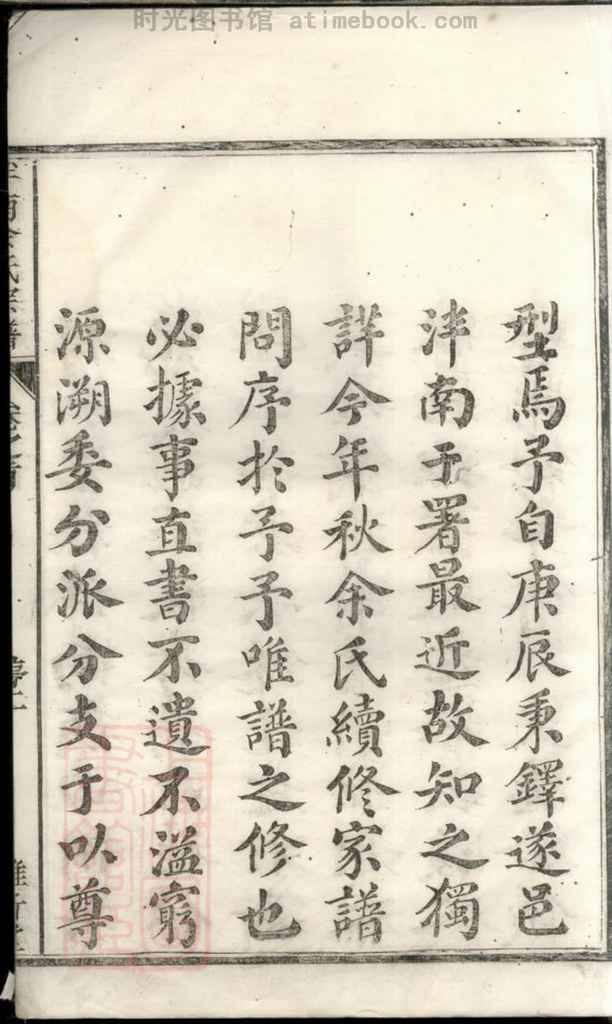 时光图书馆 atimebook.com
型焉予自庚辰秉鐸遂邑
泮南于署最近故知之獨
詳今年秋余氏續修家譜
問序於予予唯譜之修也
必據事直書不遺不溢窮
源溯委分派分支于以尊